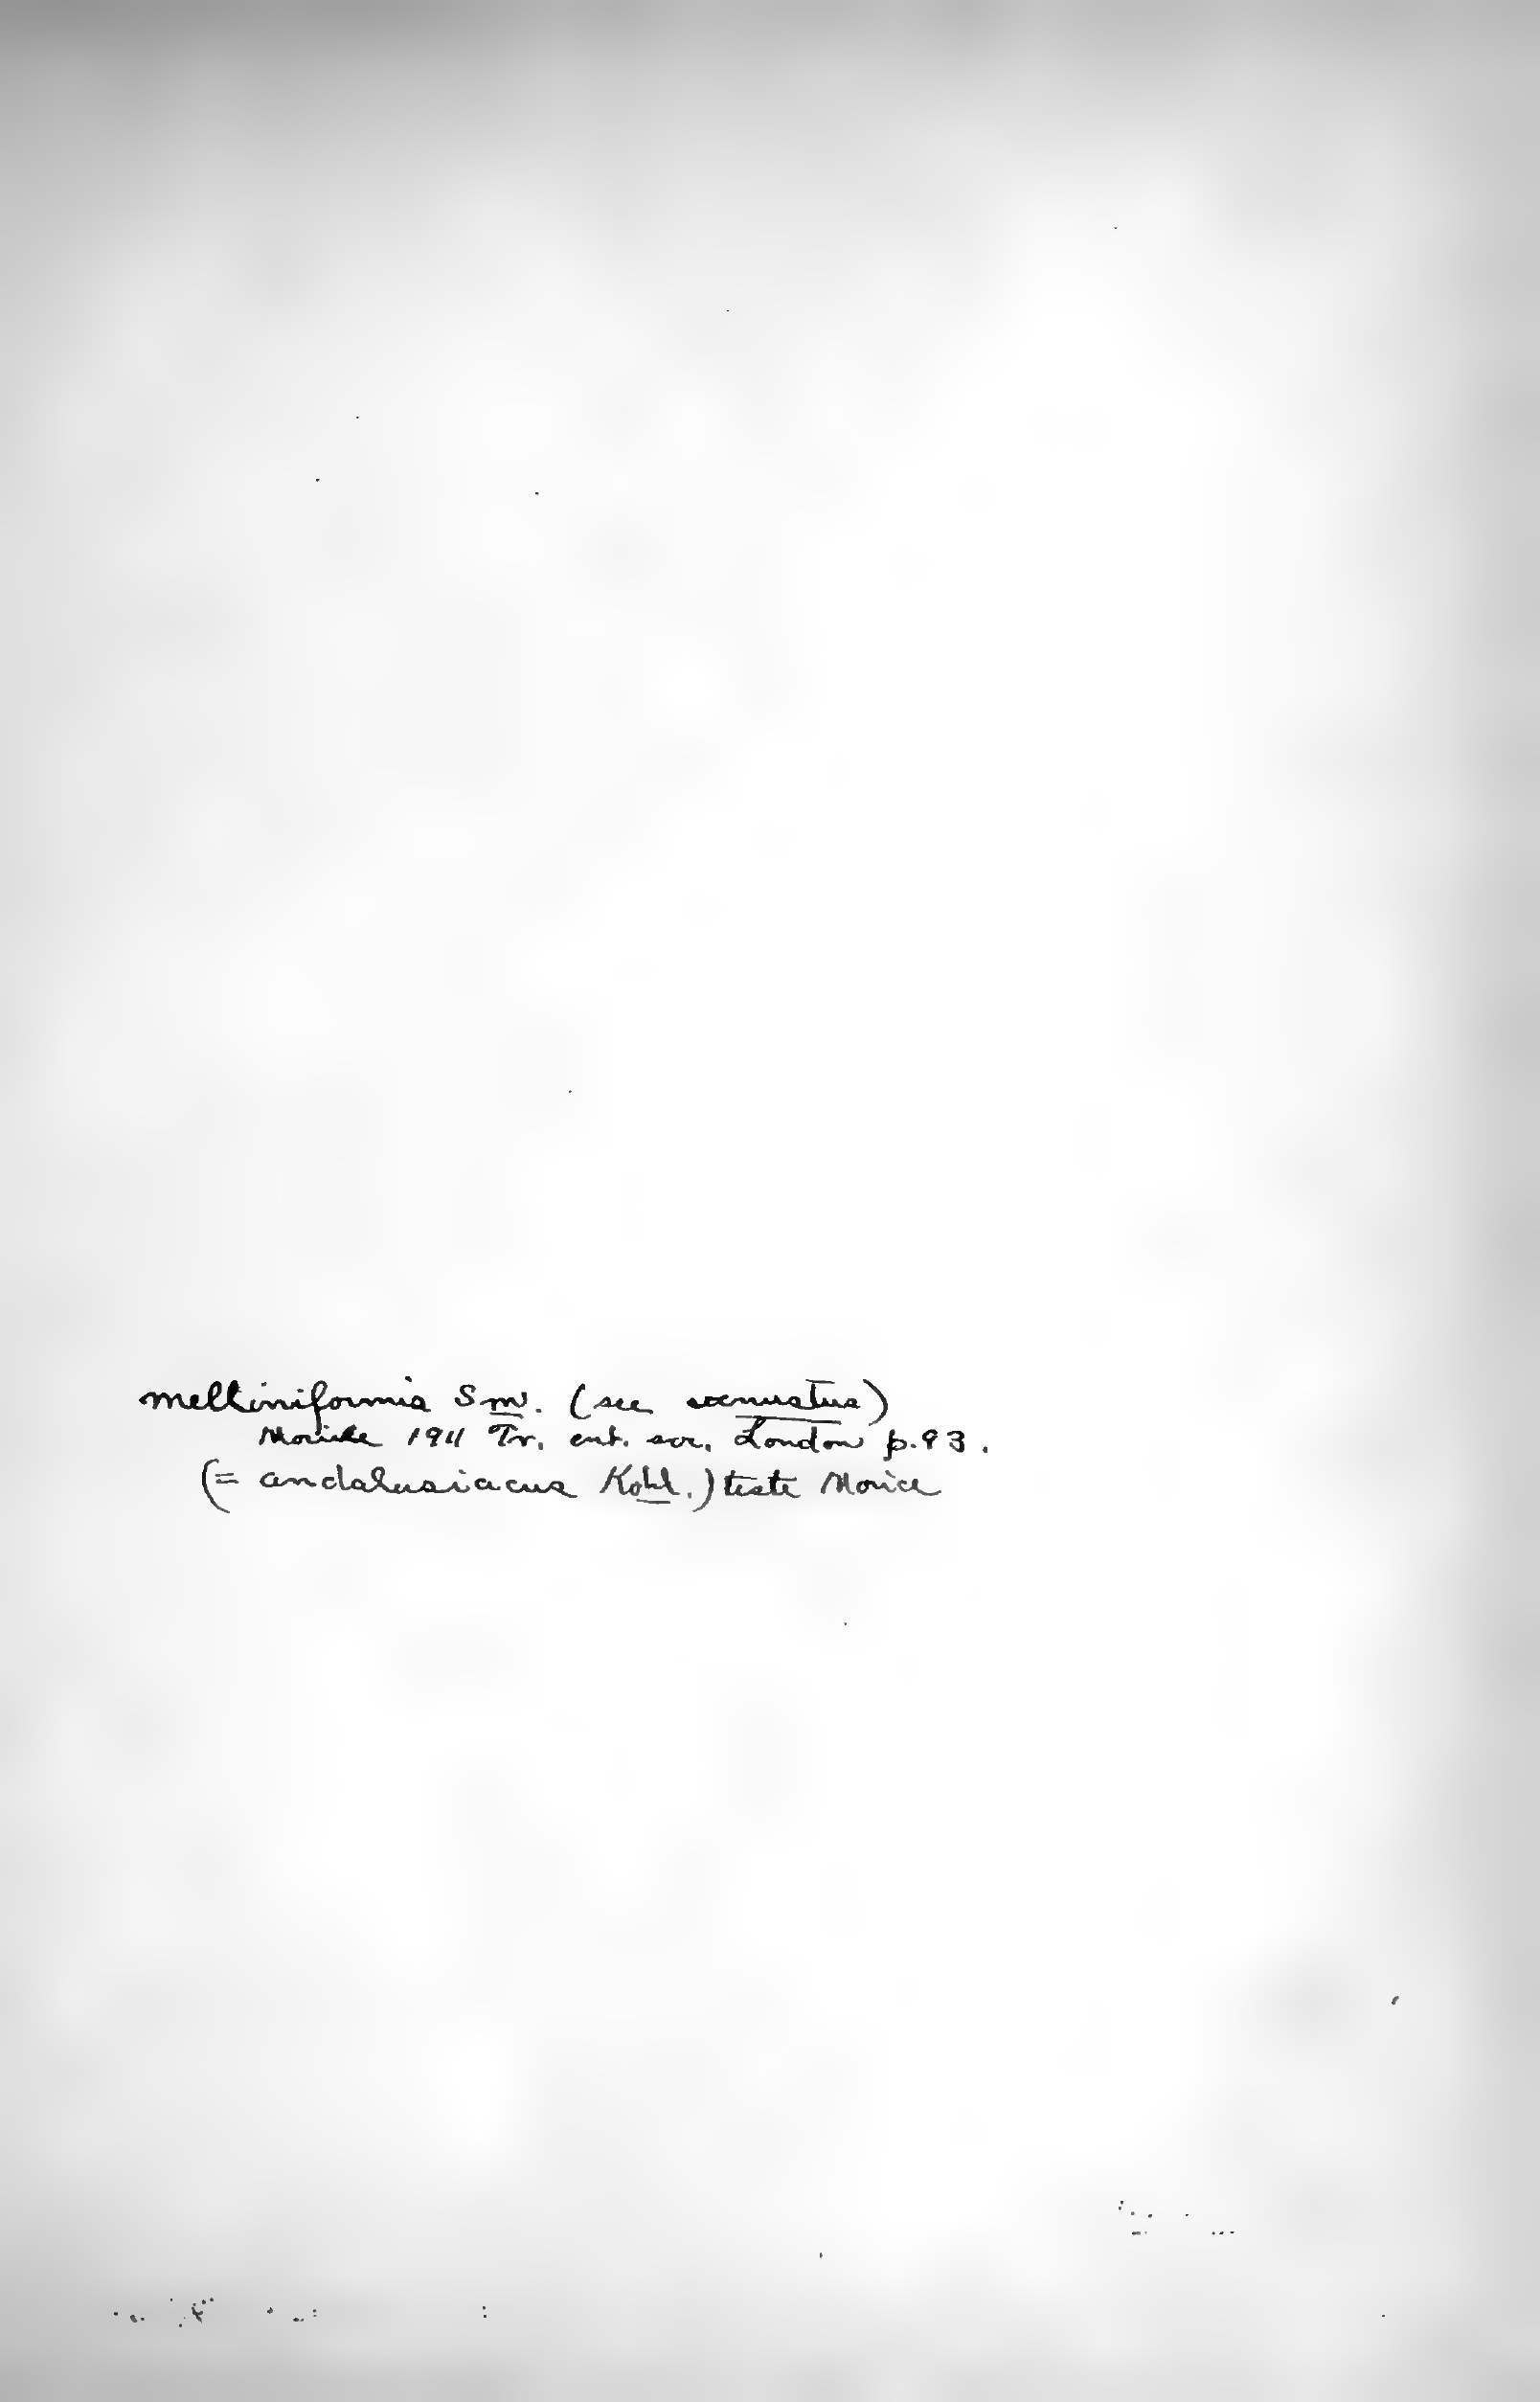 melliniformis Sm. (see venustus)
Morice 1911 Tr. ent. soc. London p.93.
(= andalusiacus Kohl.) teste Morice